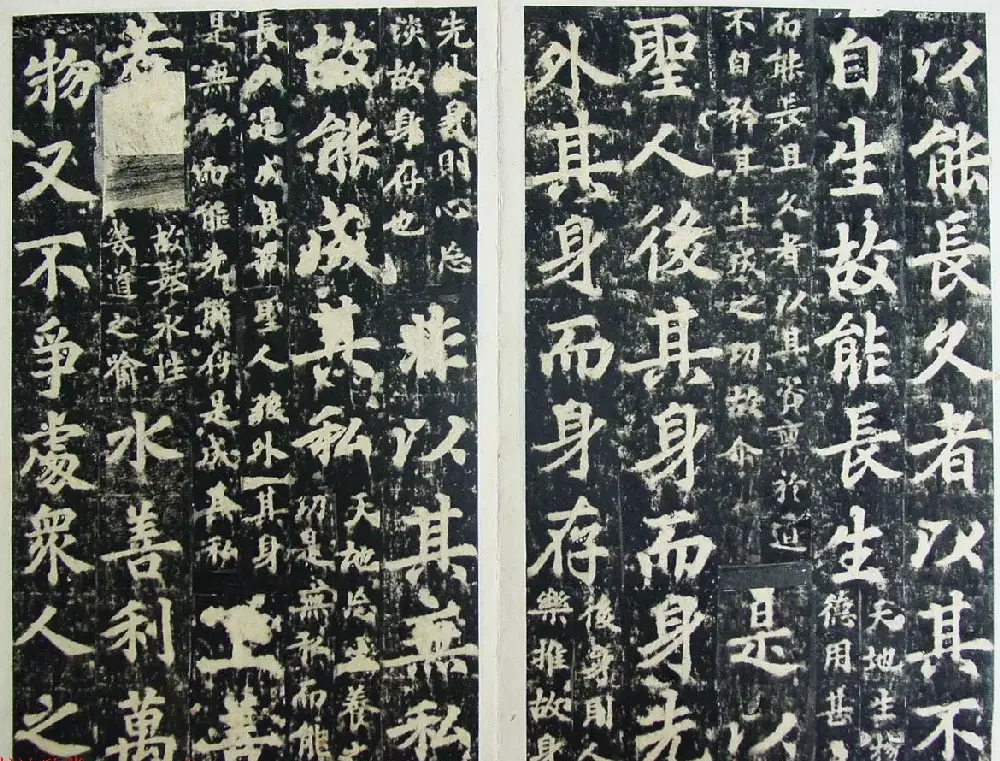 以能長久者以其不
自生故能長生
天地生物
德用甚
能長且久者以其資稟於道
不自矜其生成之功故介
是以
聖人後其身而身先
外其身而身存
後身則人
樂推故身
先外身則心忘
淡故身存也
非以其無私
故能成其私
天地忘生養生
功是無私而能
長久是成其私聖人後外其身
是無私而能先能存是成其私
上善
若
故水性
幾道之喻
水善利萬
物又不爭處衆人之